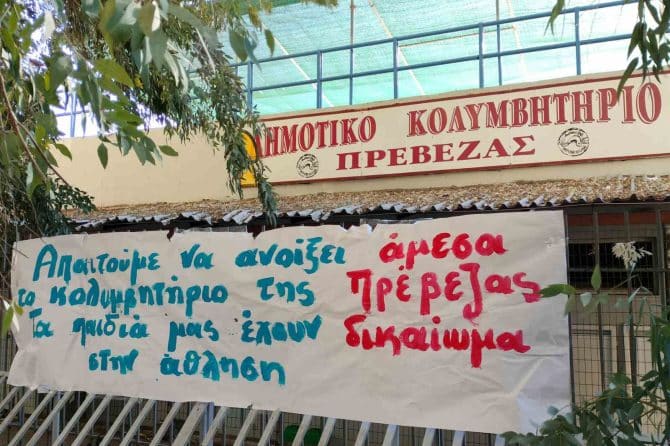 ΔΗΜΟΤΙΚΟ ΚΟΛΥΜΒΗΤΗΡΙΟ
ΠΡΕΒΕΖΑΣ
Απαιτούμε να ανοίξει άμεσα
το κολυμβητήριο της Πρέβεζας
Τα παιδιά μας έχουν δικαίωμα
στην άθληση